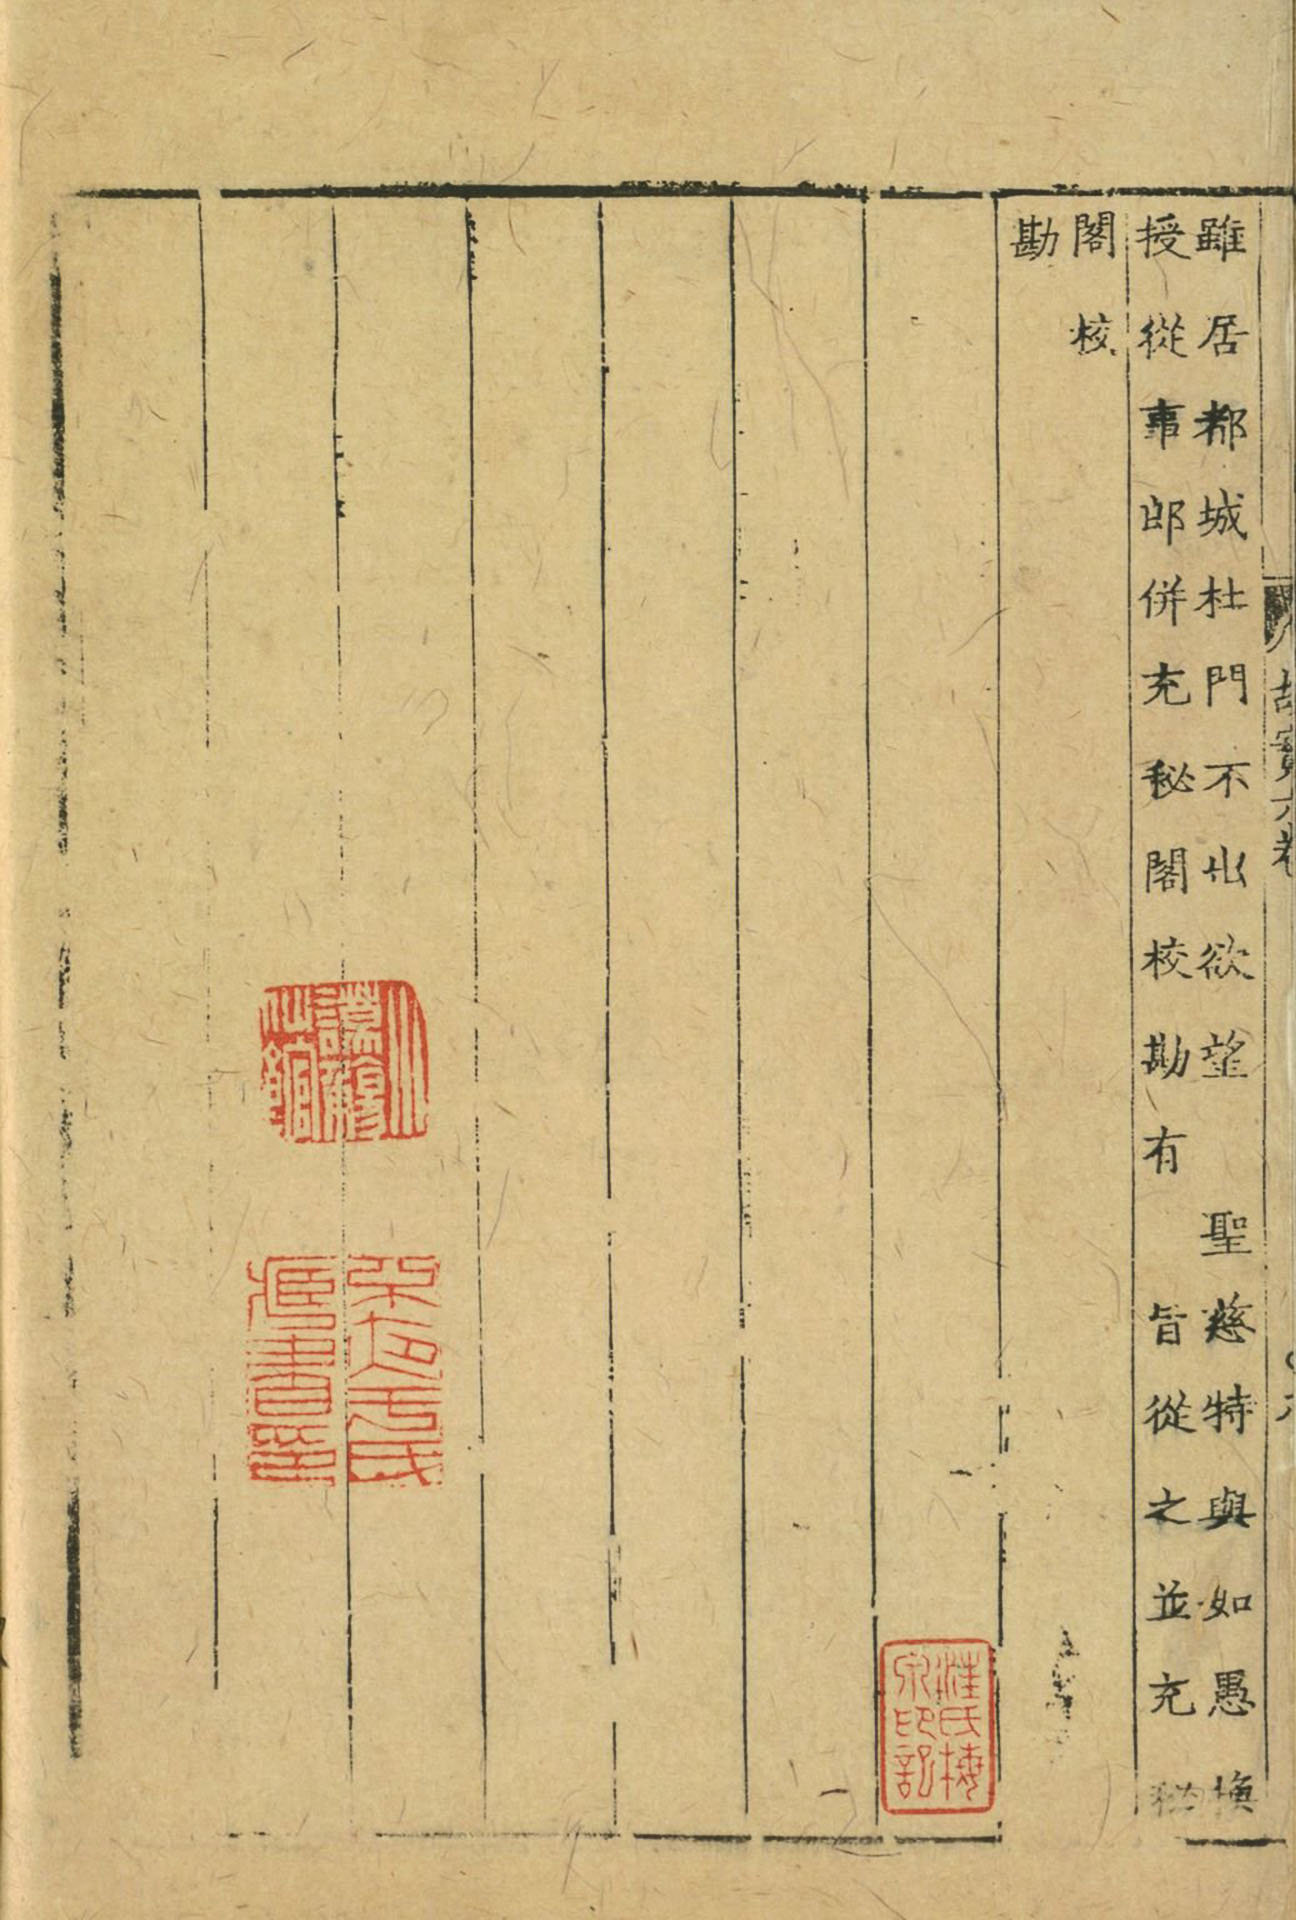 雖居都城杜門不出欲望　聖慈特與如愚換
授從事郎併充秘閣校勘有　旨從之並充秘
閣校
勘
汪氏梅泉印記